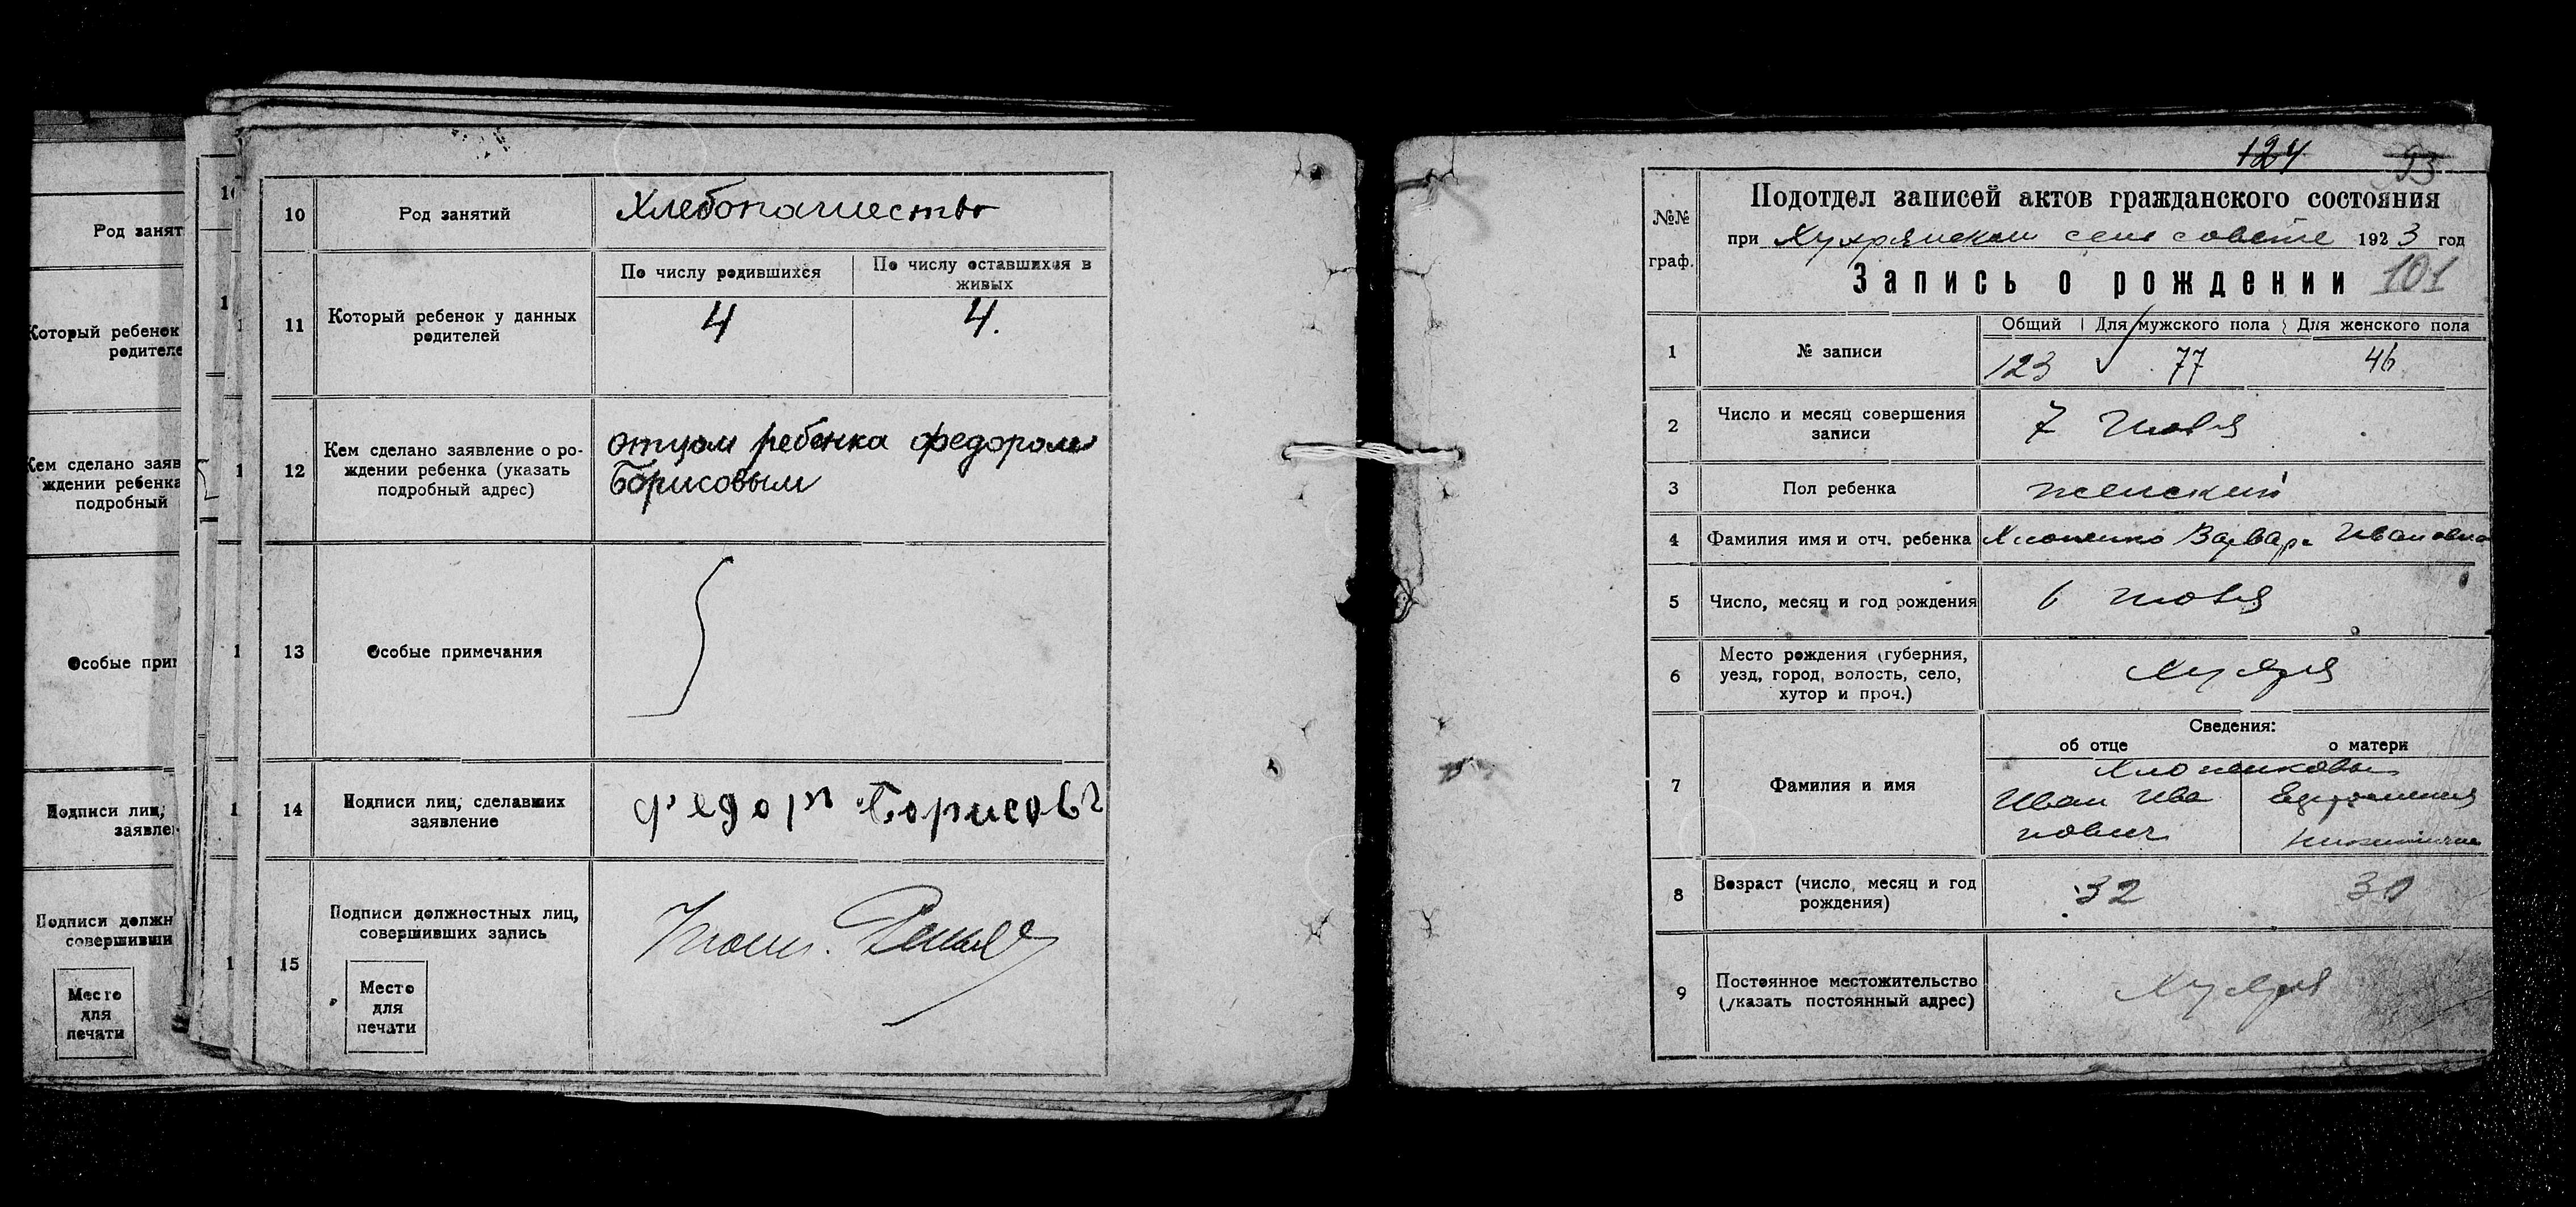 Род занят
Который ребенок
родителе
Кем сделано заяв
ждении ребенка
подробный
Особые прим
Подписи лиц,
заявле
Подписи должн
совершивши
Место
для
печати
10 Род занятий Хлебопашество
11 Который ребенок у данных
родителей
По числу родившихся По числу оставшихся в
живых
4 4.
12 Кем сделано заявление о ро-
ждении ребенка (указать
подробный адрес)
отцом ребенка федором
Борисовым
13 Особые примечания
14 Подписи лиц, сделавших
заявление
Федоръ Борисовъ
15 Подписи должностных лиц,
совершивших запись
Место
для
печати
124 93
№№
граф.
Подотдел записей актов гражданского состояния
при сельсовете 1923 год
Запись о рождении 101
1 № записи
Общий Для мужского пола Для женского пола
123 77 46
2 Число и месяц совершения
записи
7
3 Пол ребенка женский
4 Фамилия имя и отч. ребенка Варвара Ивановна
5 Число, месяц и год рождения 6
6 Место рождения (губерния,
уезд, город, волость, село,
хутор и проч.)
7 Фамилия и имя
Сведения:
об отце о матери
Иван Ива
нович
8 Возраст (число, месяц и год
рождения)
32 30
9 Постоянное местожительство
(указать постоянный адрес)